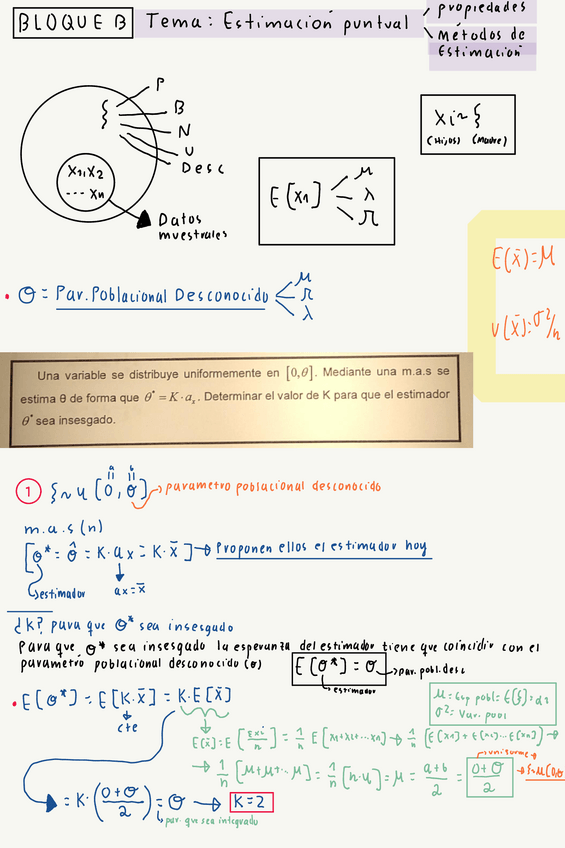 BLOQUE B Tema: Estimación puntual
propiedades
métodos de
Estimación
P
B
N
U
Desc
ξ
x1, x2
... xn
Datos
muestrales
E[x1]
μ
λ
π
xi ~ ξ
(Hijos) (Madre)
E(x̄)=μ
V(x̄)=σ²/n
• Θ = Par. Poblacional Desconocido
μ
π
λ
Una variable se distribuye uniformemente en [0,θ]. Mediante una m.a.s se
estima θ de forma que θ* = K·aₓ. Determinar el valor de K para que el estimador
θ* sea insesgado.
a b
① ξ~u [0, Θ] → parametro poblacional desconocido
m.a.s (n)
[Θ* = Θ̂ = K·ax = K·x̄] → Proponen ellos el estimador hoy
estimador ax=x̄
¿K? para que Θ* sea insesgado
Para que Θ* sea insesgado la esperanza del estimador tiene que coincidir con el
parametro poblacional desconocido (Θ) E[Θ*] = Θ → par. pobl. desc
estimador
μ= Esp pobl= E(ξ)=
σ²= Var. pobl
• E[Θ*] = E[K·x̄] = K·E[x̄]
cte
E[x̄]= E[Σxi/n] = 1/n E[x1+x2+...xn] → 1/n (E[x1]+E[x2]...E[xn]) →
→ 1/n [μ+μ+...μ] = 1/n [n·μ] = μ = a+b/2 = 0+Θ/2
uniforme
= K·(0+Θ/2) = Θ → K=2
par. que sea